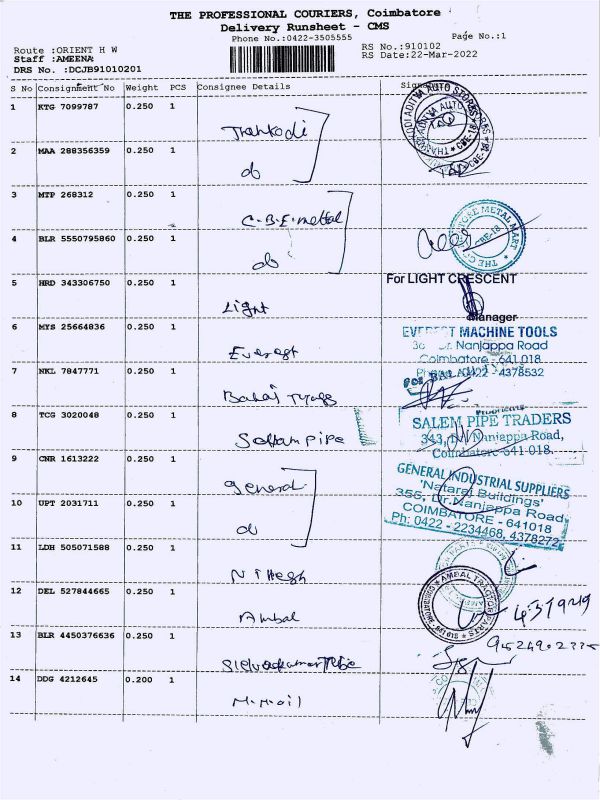 THE PROFESSIONAL COURIERS, Coimbatore
Delivery Runsheet - CMS
Phone No.:0422-3505555
Page No.:1
Route :ORIENT H W
RS No.:910102
Staff :AMEENA
RS Date:22-Mar-2022
DRS No. :DCJB91010201
S No Consignment No Weight PCS Consignee Details
1 KTG 7099787 0.250 1
Thankodi
2 MAA 288356359 0.250 1
do
3 MTP 268312 0.250 1
C.B.E. metal
4 BLR 5550795860 0.250 1
do
5 HRD 343306750 0.250 1
For LIGHT CRESCENT
Light
Manager
6 MYS 25664836 0.250 1
EVEREST MACHINE TOOLS
Dr. Nanjappa Road
Everest
Coimbatore - 641 018.
7 NKL 7847771 0.250 1
0422 - 4378532
Balaji
8 TCG 3020048 0.250 1
SALEM PIPE TRADERS
343, Dr. Nanjappa Road,
pipe
Coimbatore-641 018.
9 CNR 1613222 0.250 1
GENERAL INDUSTRIAL SUPPLIERS
'Nataraj Buildings'
general
355, Dr. Nanjappa Road
10 UPT 2031711 0.250 1
COIMBATORE - 641018
Ph: 0422 - 2234468, 4378272
do
11 LDH 505071588 0.250 1
Nithesh
12 DEL 527844665 0.250 1
AMBAL TRACTOR PARTS
Ambal
13 BLR 4450376636 0.250 1
14 DDG 4212645 0.200 1
M.M.oil